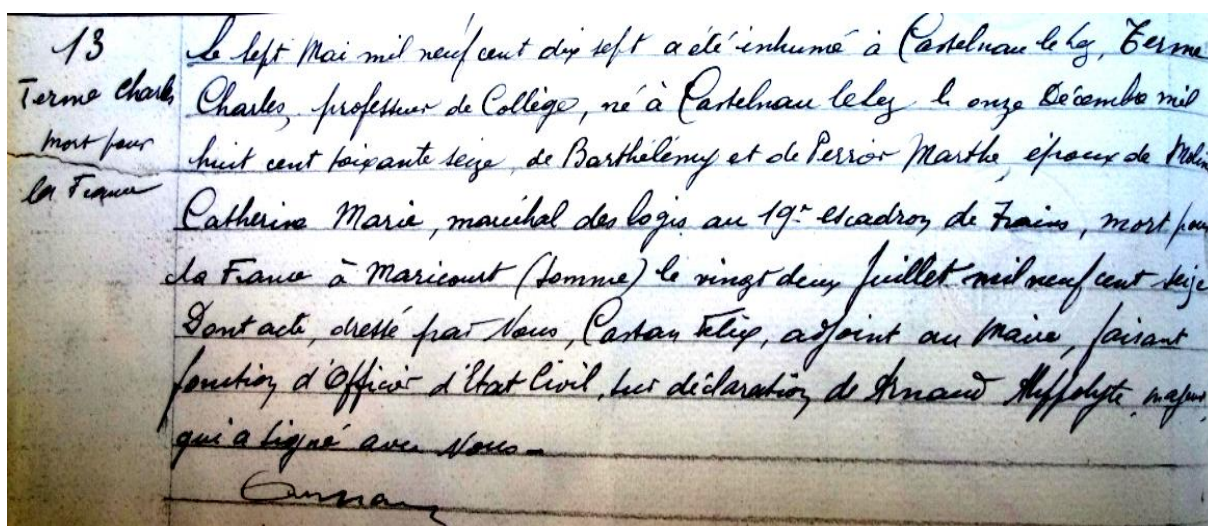 13
Terme Charles
mort pour
la France
Le sept Mai mil neuf cent dix sept a été inhumé à Castelnau le Lez, Terme
Charles, professeur de Collège, né à Castelnau le Lez le onze Décembre mil
huit cent soixante seize, de Barthélémy et de Perrier Marthe, époux de Molin
Catherine Marie, maréchal des logis au 19e escadron de Trains, mort pour
la France à Maricourt (Somme) le vingt deux Juillet mil neuf cent seize
Dont acte, dressé par Nous, Castan Félix, adjoint au Maire, faisant
fonction d'Officier d'Etat Civil, sur déclaration de Arnaud Hippolyte, majeur,
qui a signé avec Nous.